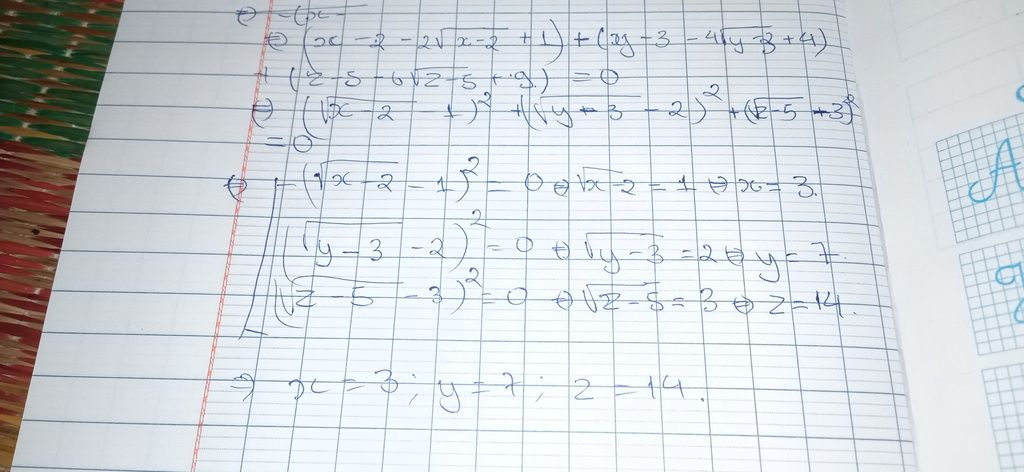 ⇔ -(x-
⇔ (x - 2 - 2√x-2 + 1) + (y - 3 - 4√y-3 + 4)
+ (z - 5 - 6√z-5 + 9) = 0
⇔ (√x-2 - 1)² + (√y-3 - 2)² + (√z-5 + 3)²
= 0
⇔ (√x-2 - 1)² = 0 ⇔ √x-2 = 1 ⇔ x = 3.
(√y-3 - 2)² = 0 ⇔ √y-3 = 2 ⇔ y = 7.
(√z-5 - 3)² = 0 ⇔ √z-5 = 3 ⇔ z = 14.
⇒ x = 3 ; y = 7 ; z = 14.